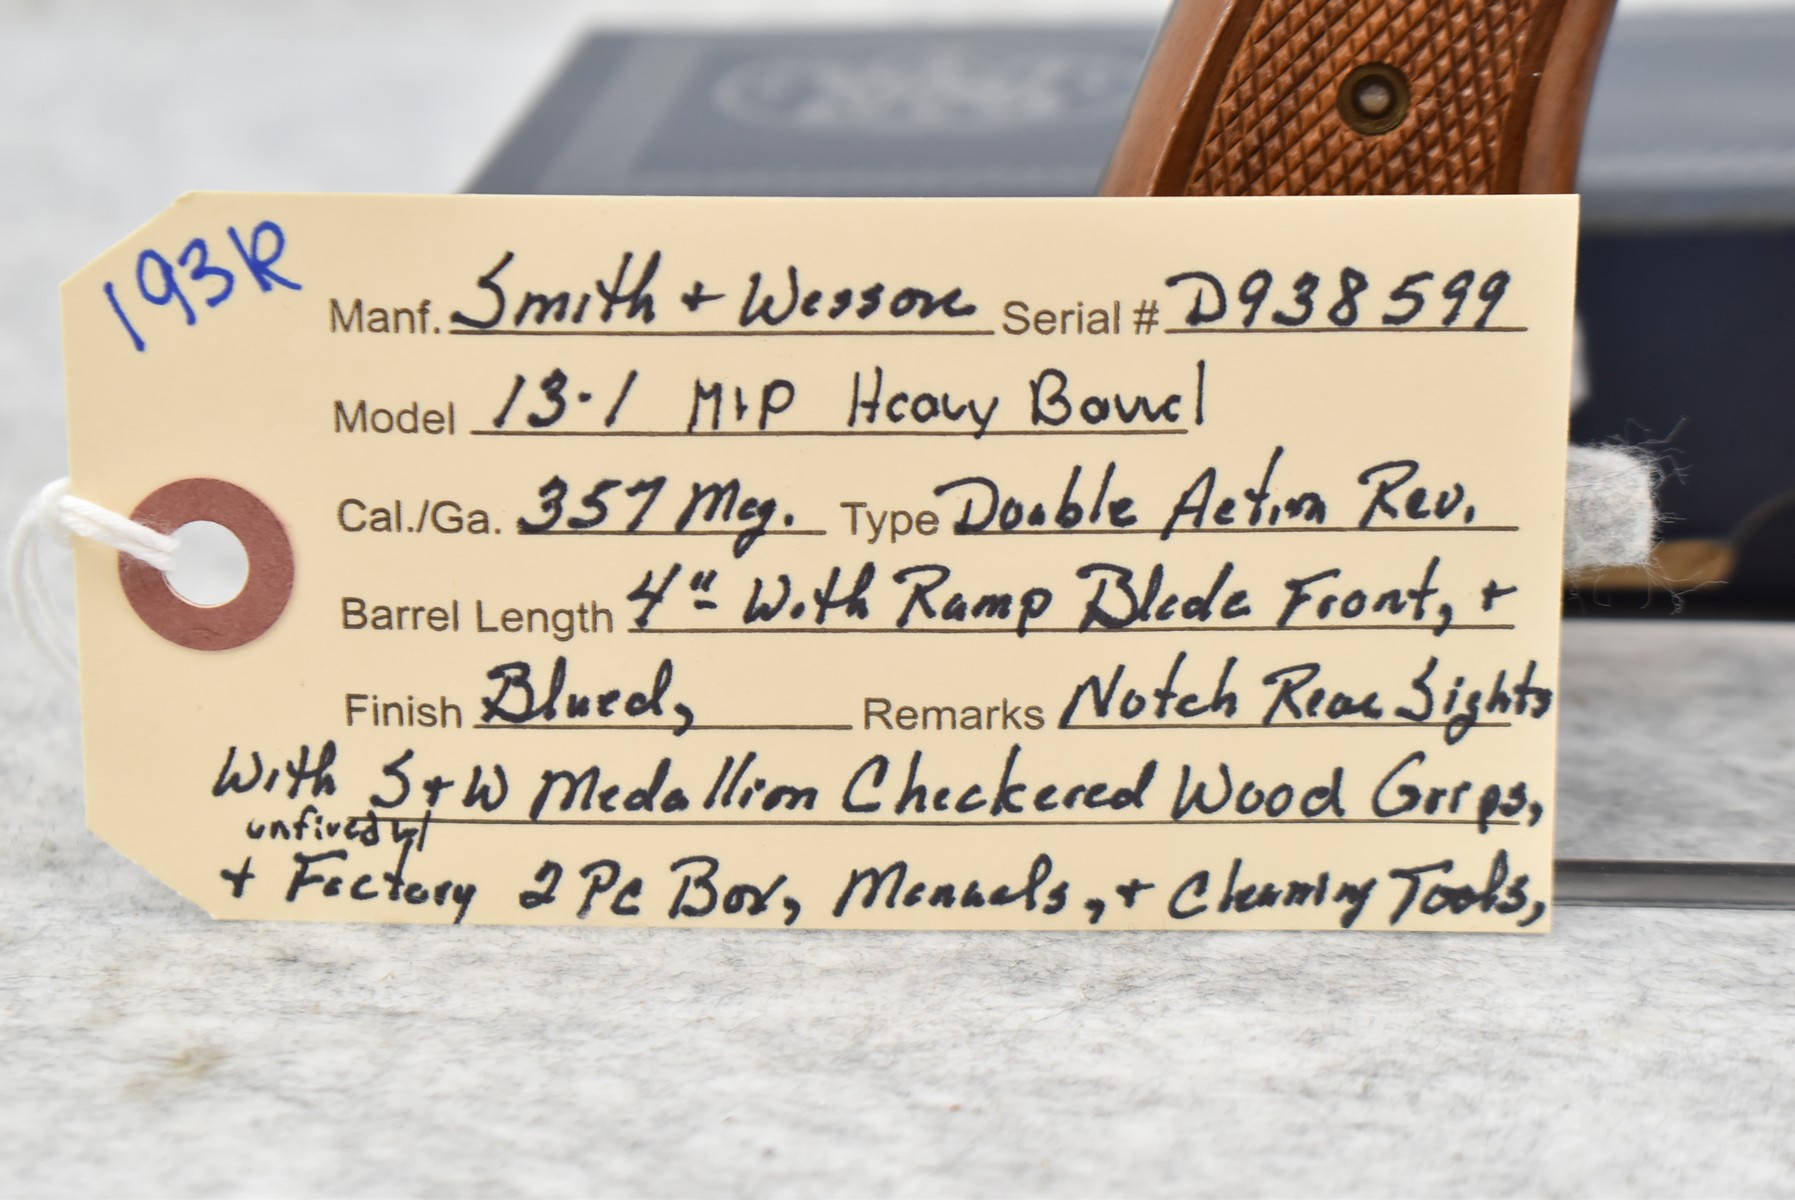 193R
Manf. Smith + Wesson Serial # D938599
Model 13-1 M+P Heavy Barrel
Cal./Ga. 357 Mag. Type Double Action Rev.
Barrel Length 4" With Ramp Blade Front, +
Finish Blued, Remarks Notch Rear Sights
With S+W Medallion Checkered Wood Grips,
unfired w/
+ Factory 2 Pc Box, Manuals, + Cleaning Tools,